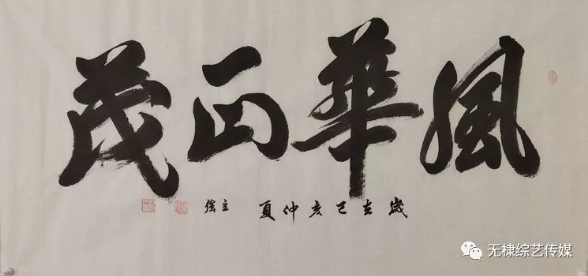 風華正茂
歲在己亥仲夏 立強
无棣综艺传媒